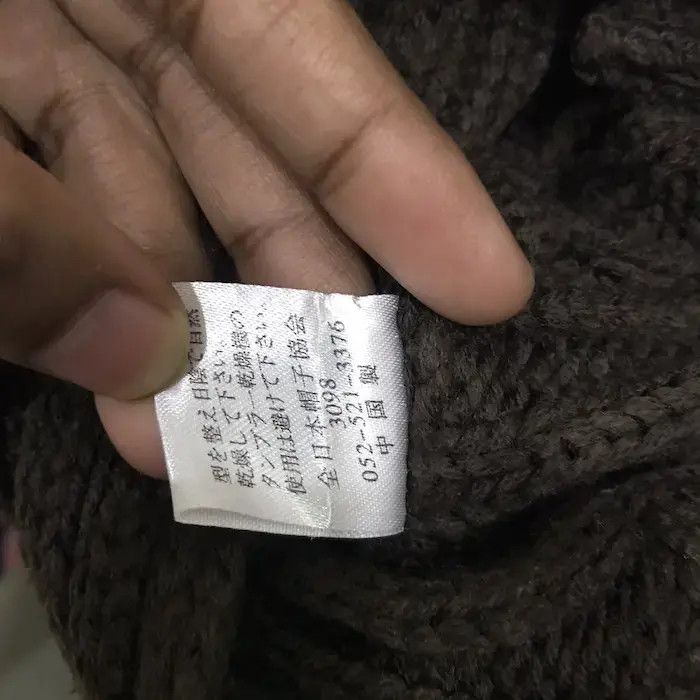 型を整え 日陰で自然
乾燥して下さい。
タンブラー乾燥機の
使用は避けて下さい。
全日本帽子協会
3098
052-521-3376
中国製